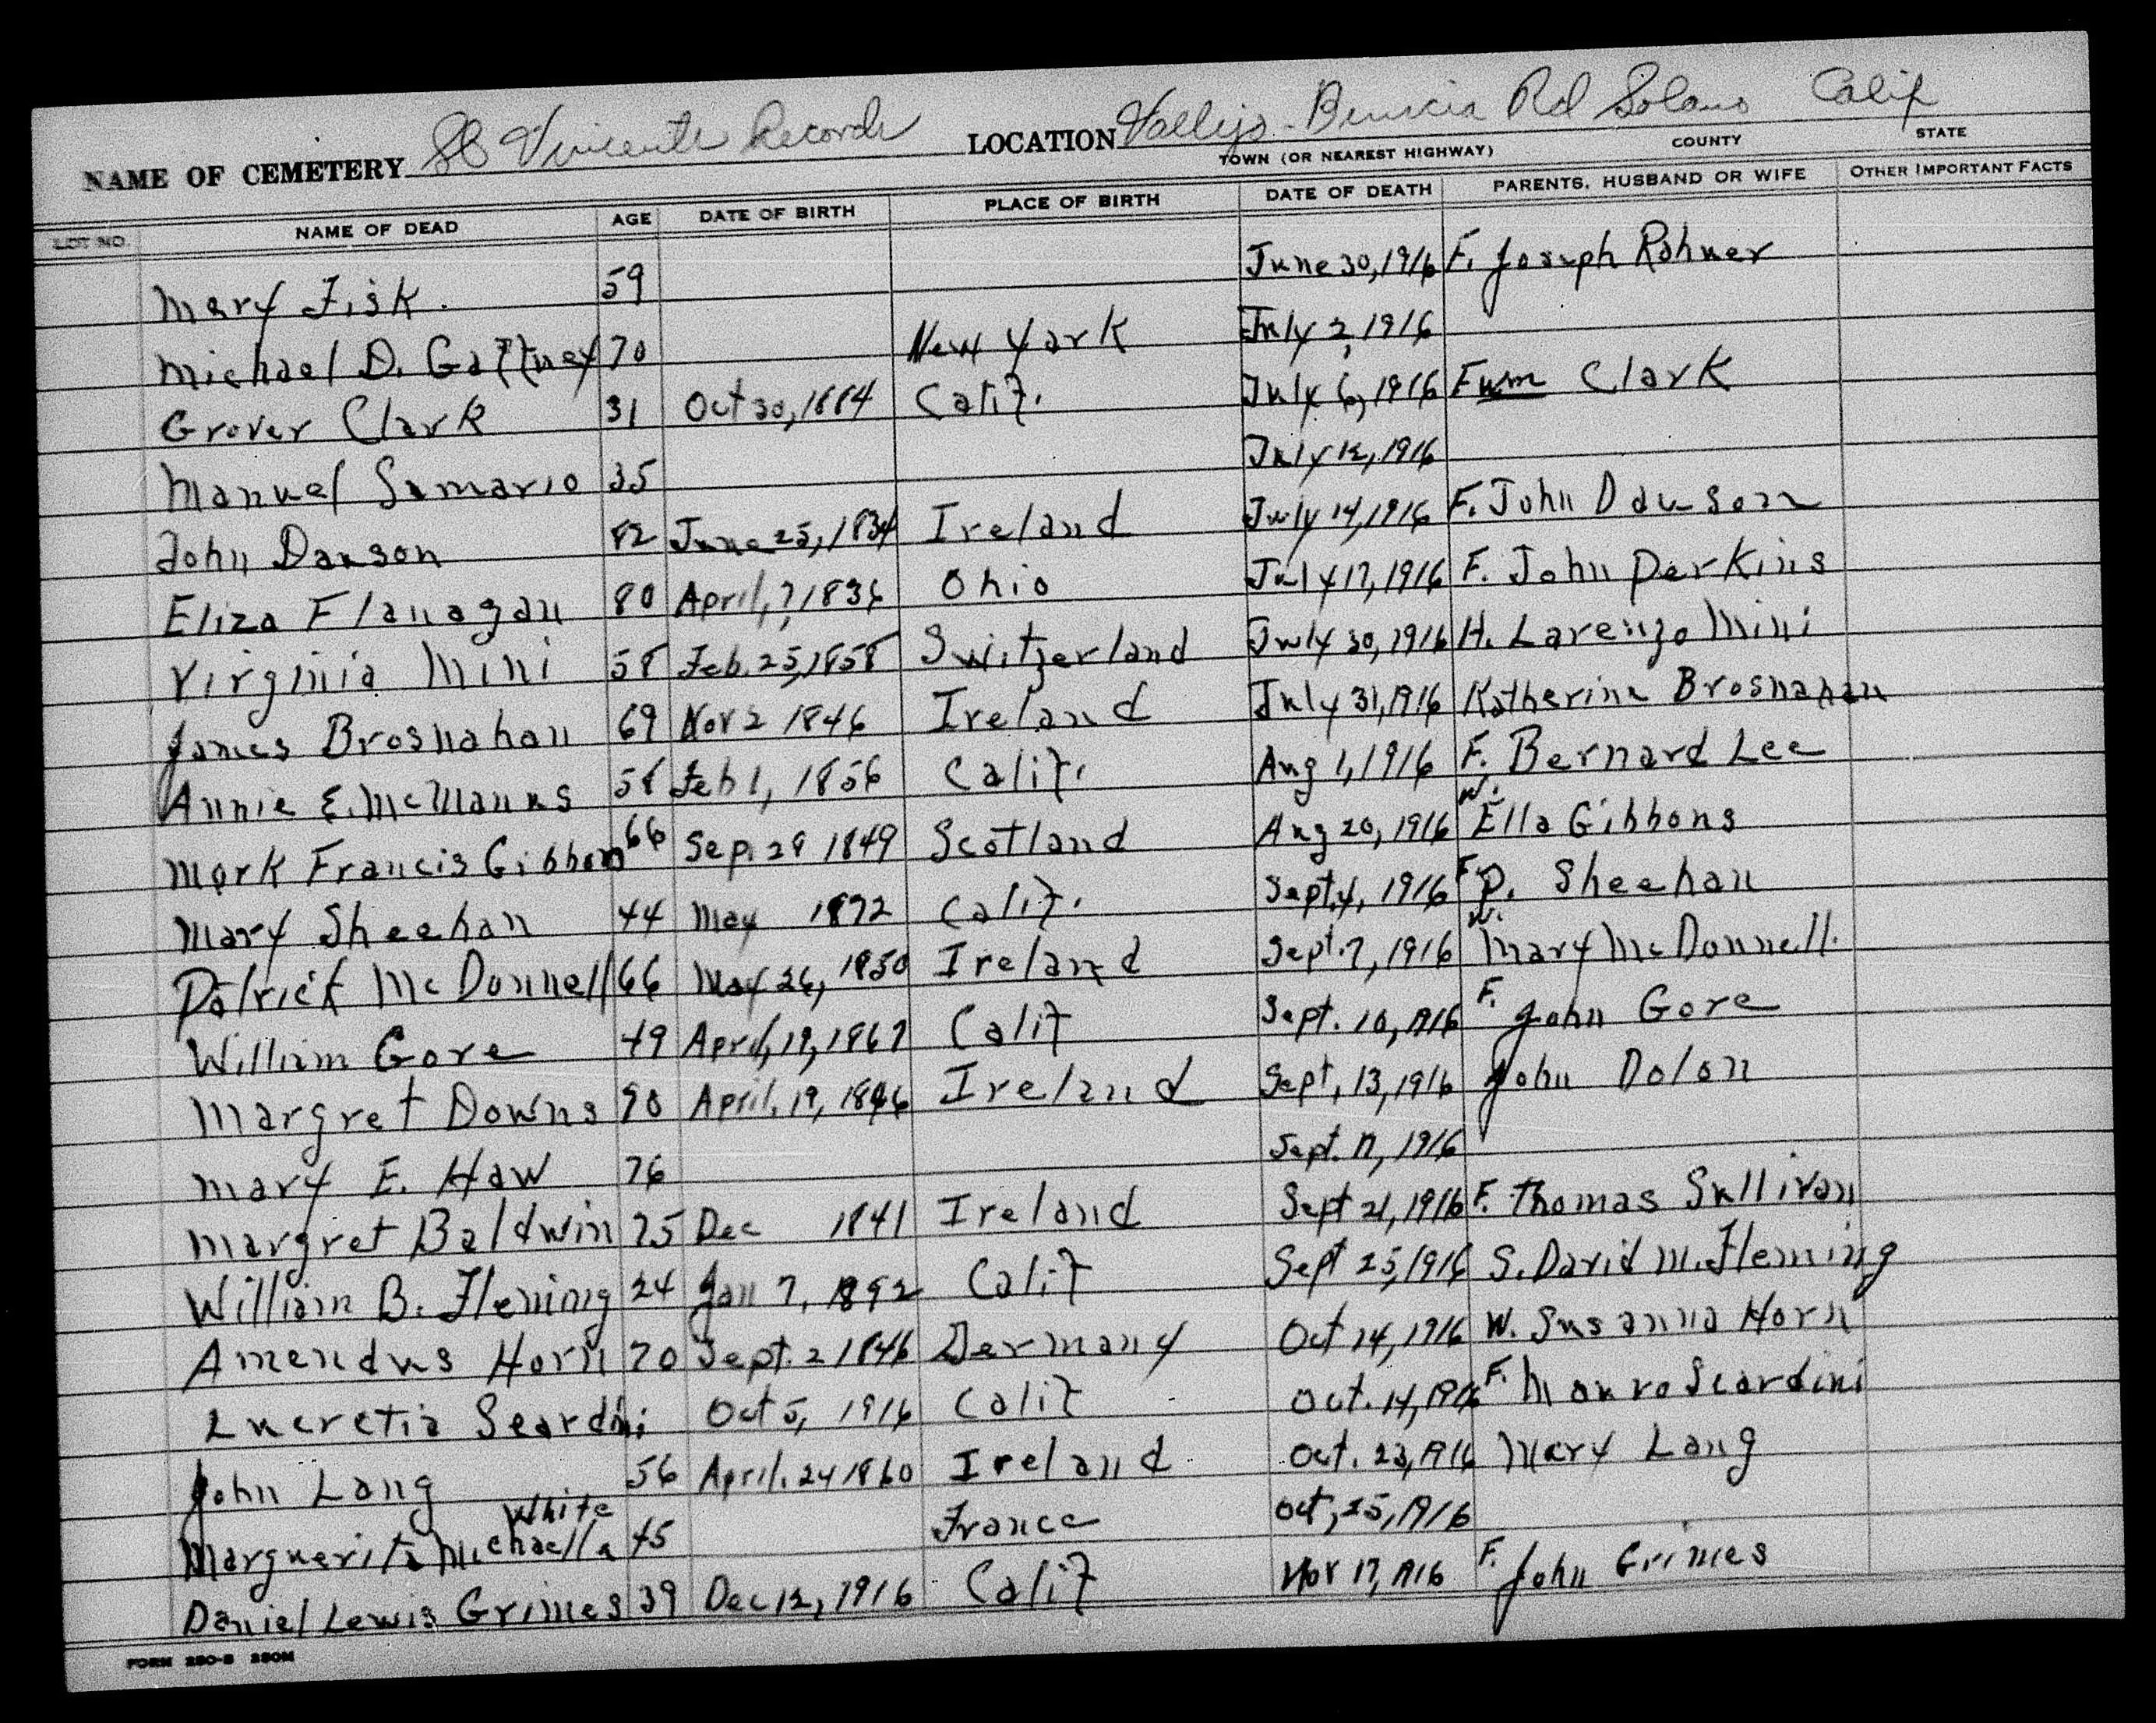 NAME OF CEMETERY St Vincents Records LOCATION Vallejo-Benicia Rd Solano Calif
TOWN (OR NEAREST HIGHWAY) COUNTY STATE
LOT NO. NAME OF DEAD AGE DATE OF BIRTH PLACE OF BIRTH DATE OF DEATH PARENTS, HUSBAND OR WIFE OTHER IMPORTANT FACTS
Mary Fisk. 59 June 30, 1916 F. Joseph Rohner
Michael D. Gaffney 70 New York July 2, 1916
Grover Clark 31 Oct 30, 1884 Calif. July 6, 1916 F Wm Clark
Manuel Samario 35 July 12, 1916
John Dawson 82 June 25, 1834 Ireland July 14, 1916 F. John Dawson
Eliza Flanagan 80 April, 7, 1836 Ohio July 17, 1916 F. John Perkins
Virginia Mini 58 Feb. 25, 1858 Switzerland July 30, 1916 H. Larenzo Mini
James Brosnahan 69 Nov 2 1846 Ireland July 31, 1916 Katherine Brosnahan
Annie E. McManus 58 Feb 1, 1856 Calif. Aug 1, 1916 F. Bernard Lee
Mark Francis Gibbon 66 Sep. 29 1849 Scotland Aug 20, 1916 W. Ella Gibbons
Mary Sheehan 44 May 1872 Calif. Sept. 4, 1916 F P. Sheehan
Patrick McDonnell 66 May 26, 1850 Ireland Sept. 7, 1916 W. Mary McDonnell.
William Gore 49 April, 19, 1867 Calif Sept. 10, 1916 F. John Gore
Margret Downs 90 April. 19, 1846 Ireland Sept, 13, 1916 John Dolan
Mary E. Haw 76 Sept. 17, 1916
Margret Baldwin 75 Dec 1841 Ireland Sept 21, 1916 F. Thomas Sullivan
William B. Fleming 24 Jan 7, 1892 Calif Sept 25, 1916 S. David M. Fleming
Amendus Horn 70 Sept. 2 1846 Germany Oct 14, 1916 W. Susanna Horn
Lucretia Scardini Oct 5, 1916 Calif Oct. 14, 1916 F. Mauro Scardini
John Lang 56 April. 24 1860 Ireland Oct. 23, 1916 Mary Lang
Marguerite Michaella White 45 France Oct, 25, 1916
Daniel Lewis Grimes 39 Dec 12, 1916 Calif Nov 17, 1916 F. John Grimes
FORM 280-B 250M